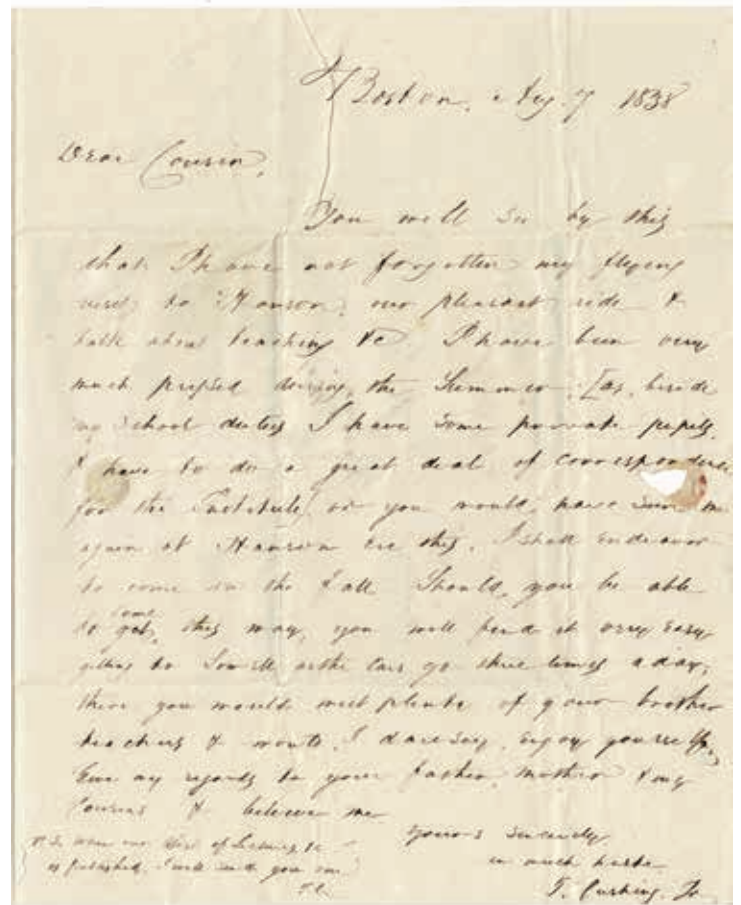 Boston, Aug. 7 1838
Dear Cousin,
You will see by this
that I have not forgotten my flying
visit to Hanson, our pleasant ride &
talk about teaching &c. I have been very
much pressed during the Summer, [as, beside
my school duties I have some private pupils,
& have to do a great deal of correspondence
for the Institute, or you would, have seen me
again at Hanson ere this. I shall endeavor
to come in the Fall. Should, you be able
to come this way, you will find it very easy
getting to Lowell as the Cars go three times a day,
there you would meet plenty of your brother
teachers & would, I dare say, enjoy yourself.
Give my regards to your father, mother & my
Cousins & believe me
yours sincerely
in much haste
T. Cushing, Jr.
P.S. When our list of Lectures &c
is published, I will send you one.
T.C.